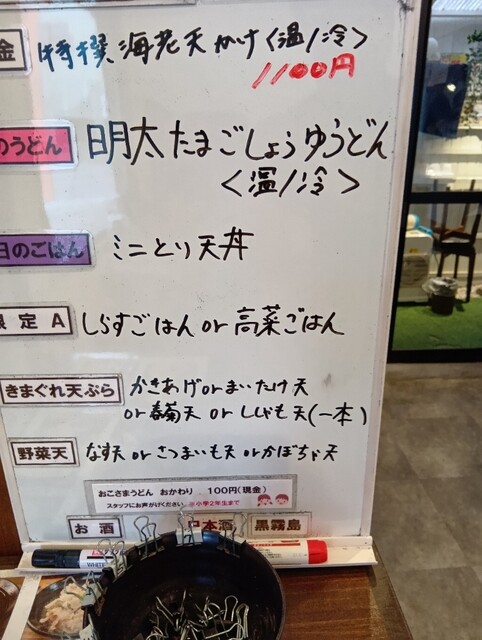 金 特撰 海老天かけ〈温/冷〉
1100円
のうどん 明太たまごしょうゆうどん
〈温/冷〉
日のごはん ミニとり天丼
限定A しらすごはん or 高菜ごはん
きまぐれ天ぷら かきあげ or まいたけ天
or 春菊天 or ししゃも天(一本)
野菜天 なす天 or さつまいも天 or かぼちゃ天
おこさまうどん おかわり 100円(現金)
スタッフにお声がけください ※小学2年生まで
お酒 日本酒 黒霧島
WHITE